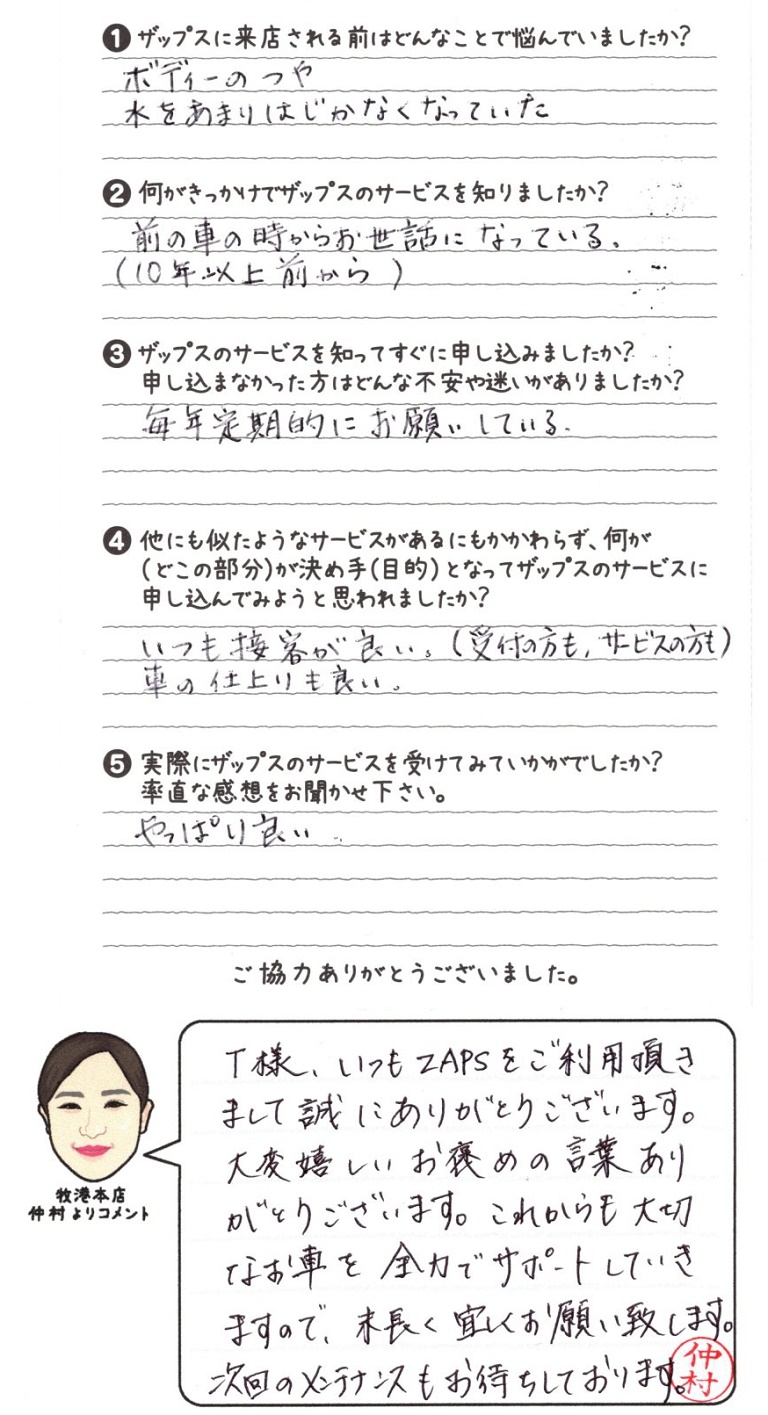 ❶ ザップスに来店される前はどんなことで悩んでいましたか?
ボディーのつや
水をあまりはじかなくなっていた
❷ 何がきっかけでザップスのサービスを知りましたか?
前の車の時からお世話になっている。
(10年以上前から)
❸ ザップスのサービスを知ってすぐに申し込みましたか?
申し込まなかった方はどんな不安や迷いがありましたか?
毎年定期的にお願いしている.
❹ 他にも似たようなサービスがあるにもかかわらず、何が
(どこの部分)が決め手(目的)となってザップスのサービスに
申し込んでみようと思われましたか?
いつも接客が良い。(受付の方も,サービスの方も)
車の仕上りも良い。
❺ 実際にザップスのサービスを受けてみていかがでしたか?
率直な感想をお聞かせ下さい。
やっぱり良い
ご協力ありがとうございました。
T様、いつもZAPSをご利用頂き
まして誠にありがとうございます。
大変嬉しいお褒めの言葉あり
がとうございます。これからも大切
なお車を全力でサポートしていき
ますので、末長く宜しくお願い致します。
次回のメンテナンスもお待ちしております。
仲村
牧港本店
仲村よりコメント